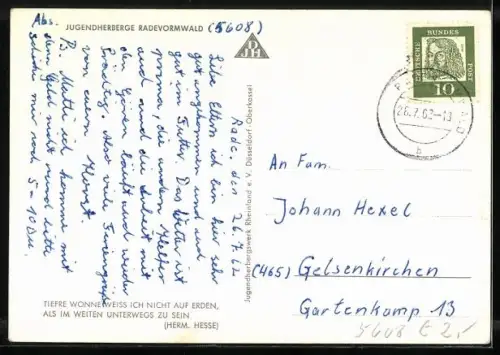 JUGENDHERBERGE RADEVORMWALD (5608)
Abs.
DJH
Rade. den 26.7.62
Liebe Eltern ich bin hier sehr
gut angekommen und auch
gut im Futter. Das Wetter ist
prima, die andern Helfer
auch und die Arbeit mit
den Gören läuft und wieder
prächtig. Also viele Feriengrüße
von euerm Horst.
PS. Mutti ich komme mit
dem Geld nicht rund bitte
schick mir noch 5-10 DM.
TIEFRE WONNE WEISS ICH NICHT AUF ERDEN,
ALS IM WEITEN UNTERWEGS ZU SEIN
(HERM. HESSE)
Jugendherbergswerk Rheinland e. V. Düsseldorf-Oberkassel
DEUTSCHE BUNDES POST
10
26.7.62-18
h
An Fam.
Johann Hexel
(465) Gelsenkirchen
Gartenkamp 13
5608 € 2,-